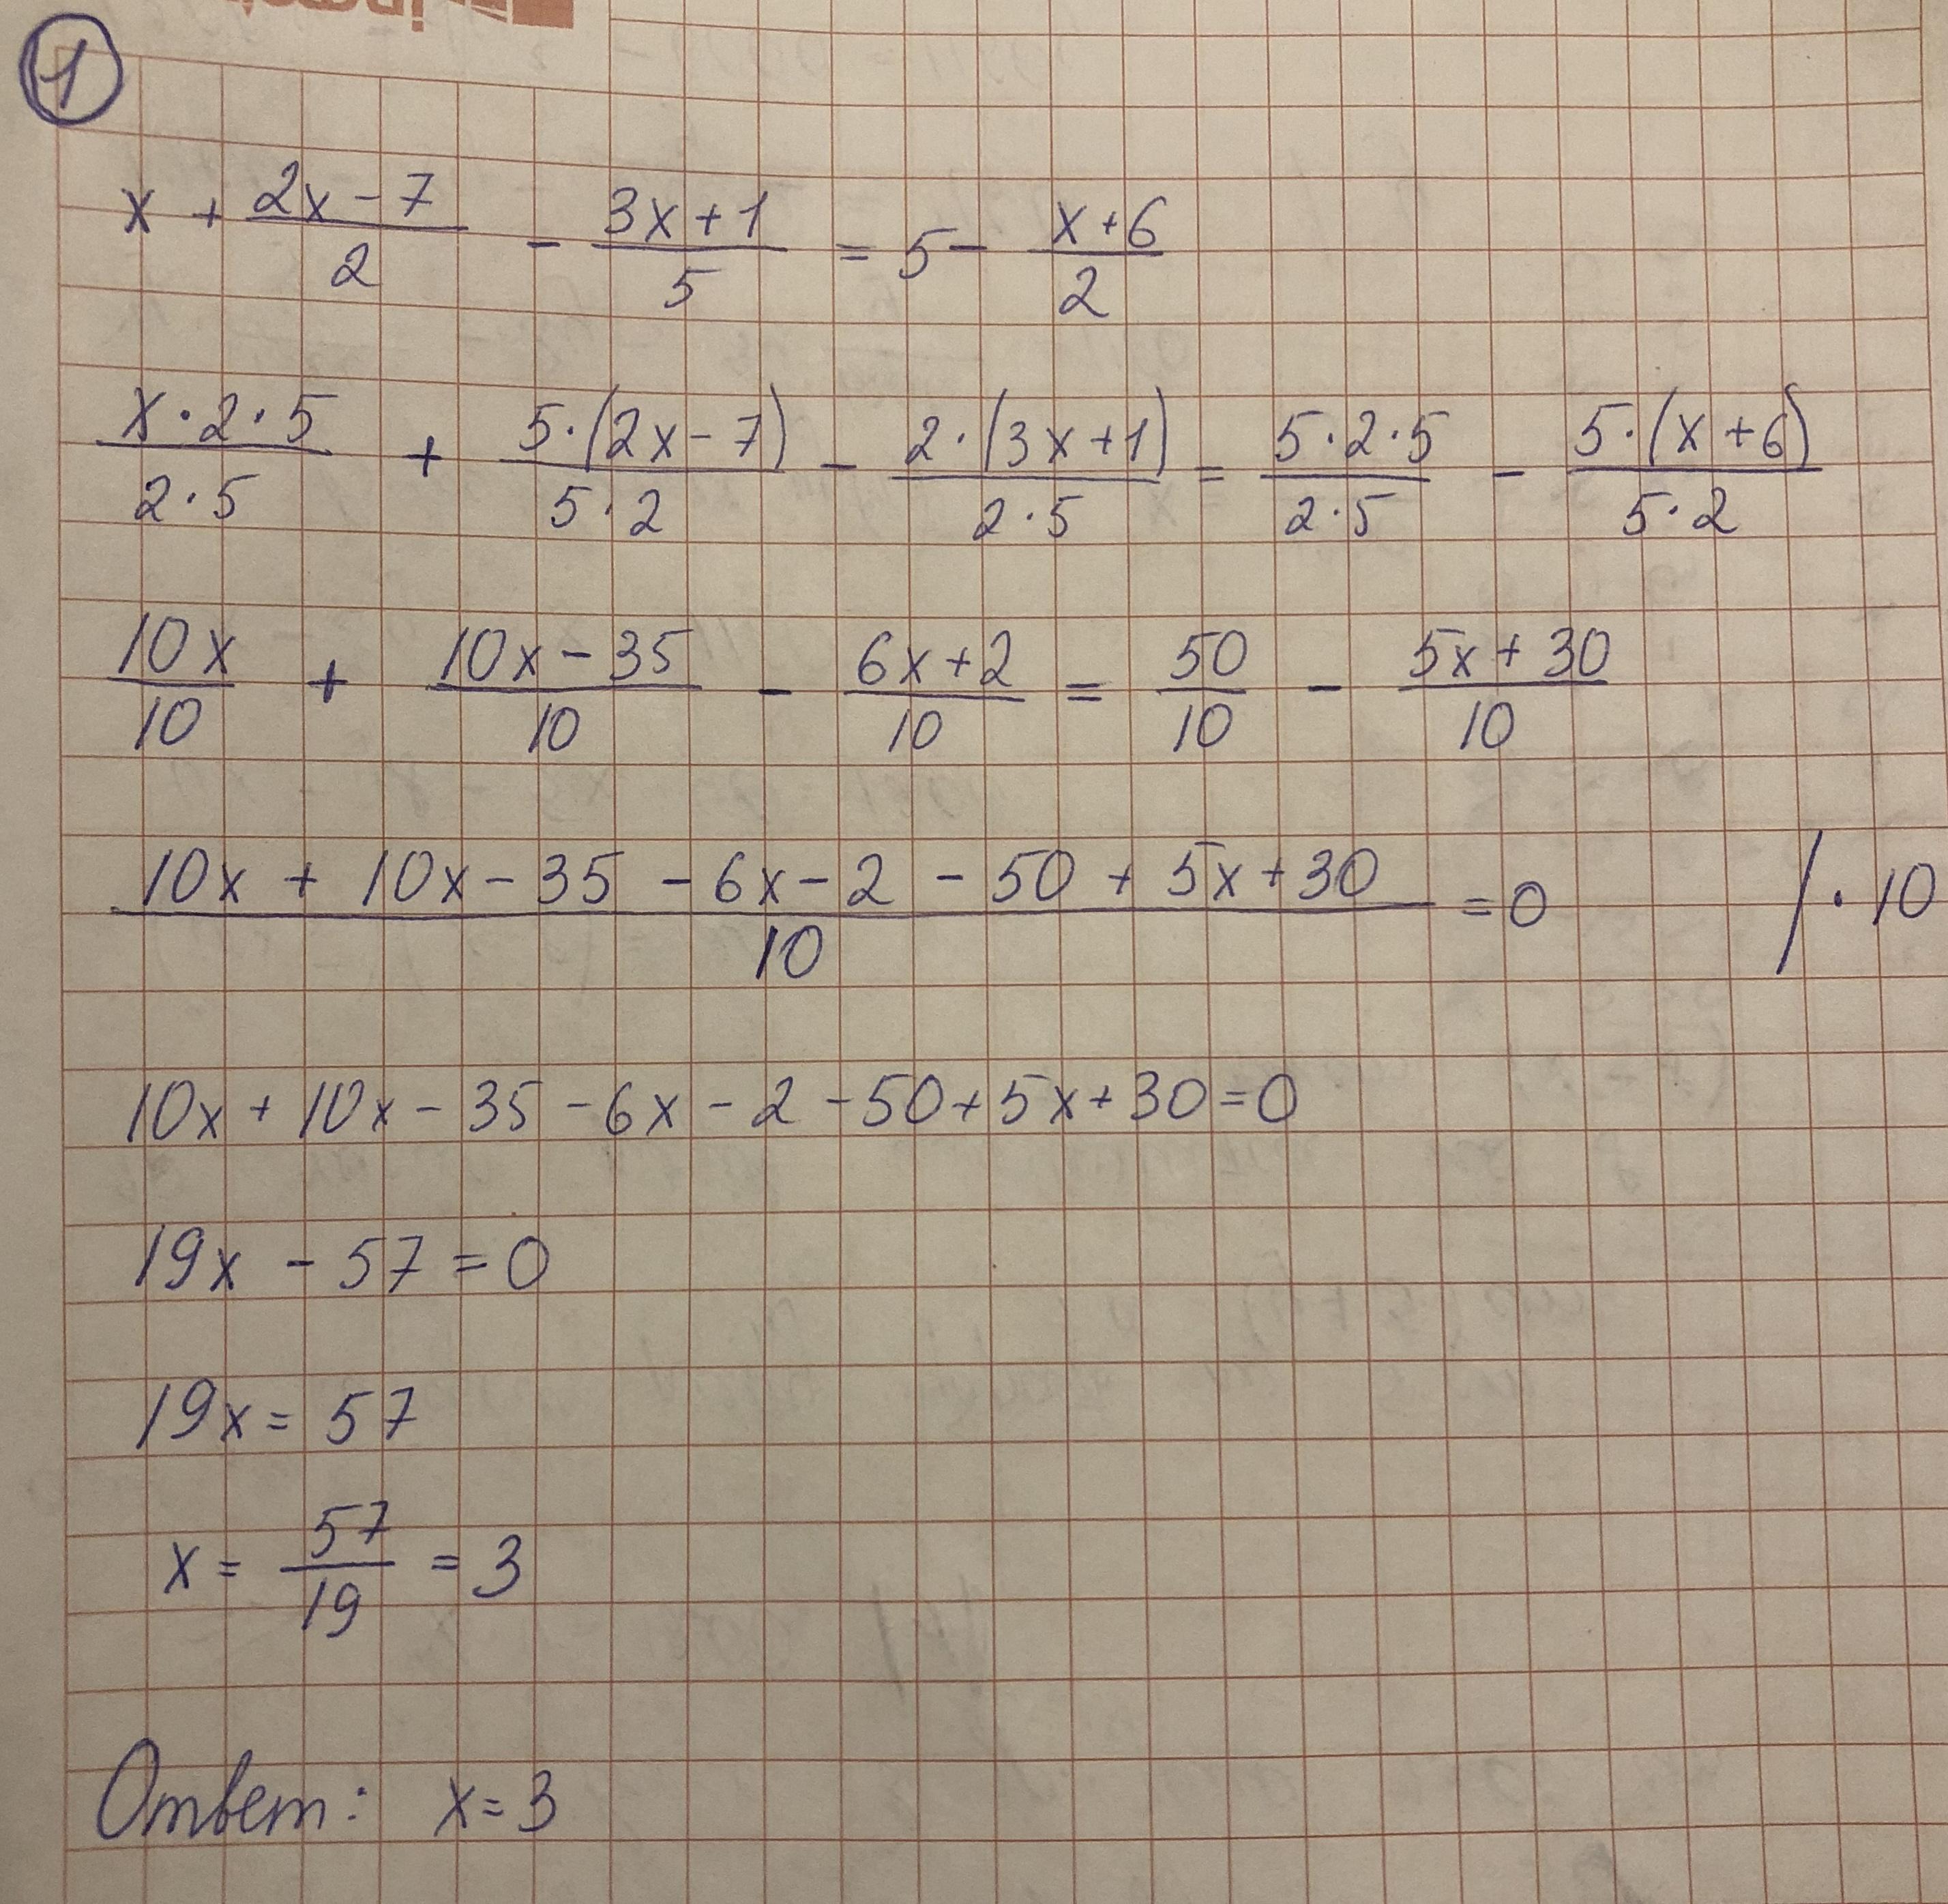 1
x + (2x-7)/2 - (3x+1)/5 = 5 - (x+6)/2
(x·2·5)/(2·5) + (5·(2x-7))/(5·2) - (2·(3x+1))/(2·5) = (5·2·5)/(2·5) - (5·(x+6))/(5·2)
10x/10 + (10x-35)/10 - (6x+2)/10 = 50/10 - (5x+30)/10
(10x + 10x - 35 - 6x - 2 - 50 + 5x + 30)/10 = 0 /·10
10x + 10x - 35 - 6x - 2 - 50 + 5x + 30 = 0
19x - 57 = 0
19x = 57
x = 57/19 = 3
Ответ: x = 3